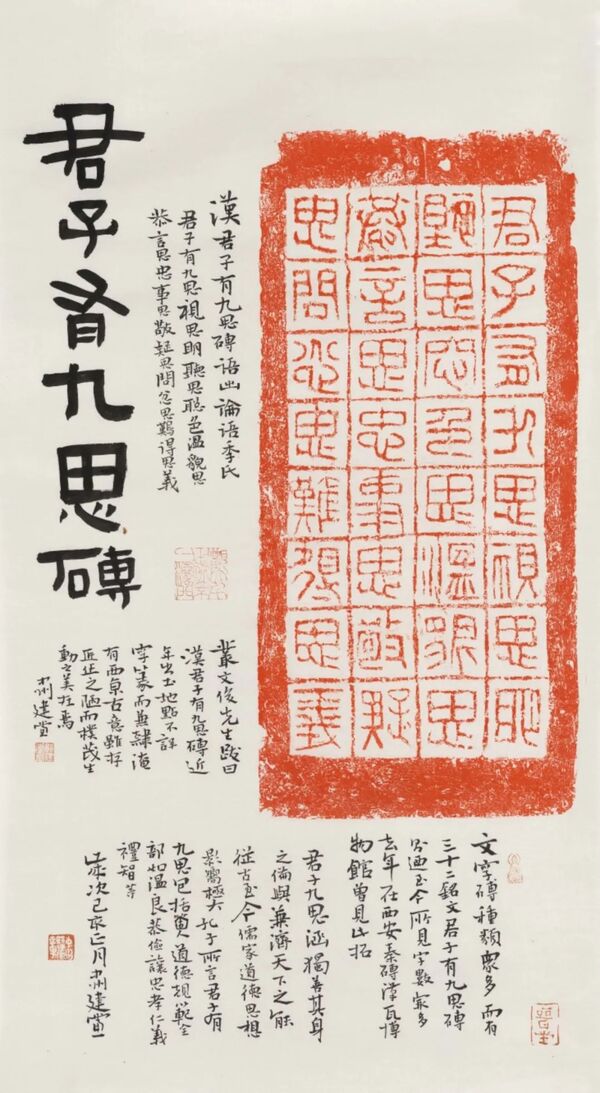 君子有九思磚
君子有九思視思明
聽思聰色思溫貌思
恭言思忠事思敬疑
思問忿思難得思義
漢君子有九思磚語出論語季氏
君子有九思視思明聽思聡色温貌思
恭言思忠事思敬疑思問忿思難得思義
叢文俊先生跋曰
漢君子有九思磚近
年出土地點不詳
字以篆而兼隸淹
有西京古意雖存
匠止之陋而樸茂生
動之美在焉
建堂
文字磚種類眾多而有
三十二銘文君子有九思磚
為迄至今所見字數最多
去年在西安秦磚漢瓦博
物館曾見此拓
君子九思涵獨善其身
之倫與兼濟天下之能
從古至今儒家道德思想
影響極大孔子所言君子有
九思包括賢人道德規範全
部如温良恭儉讓忠孝仁義
禮智等
歲次己亥正月建堂